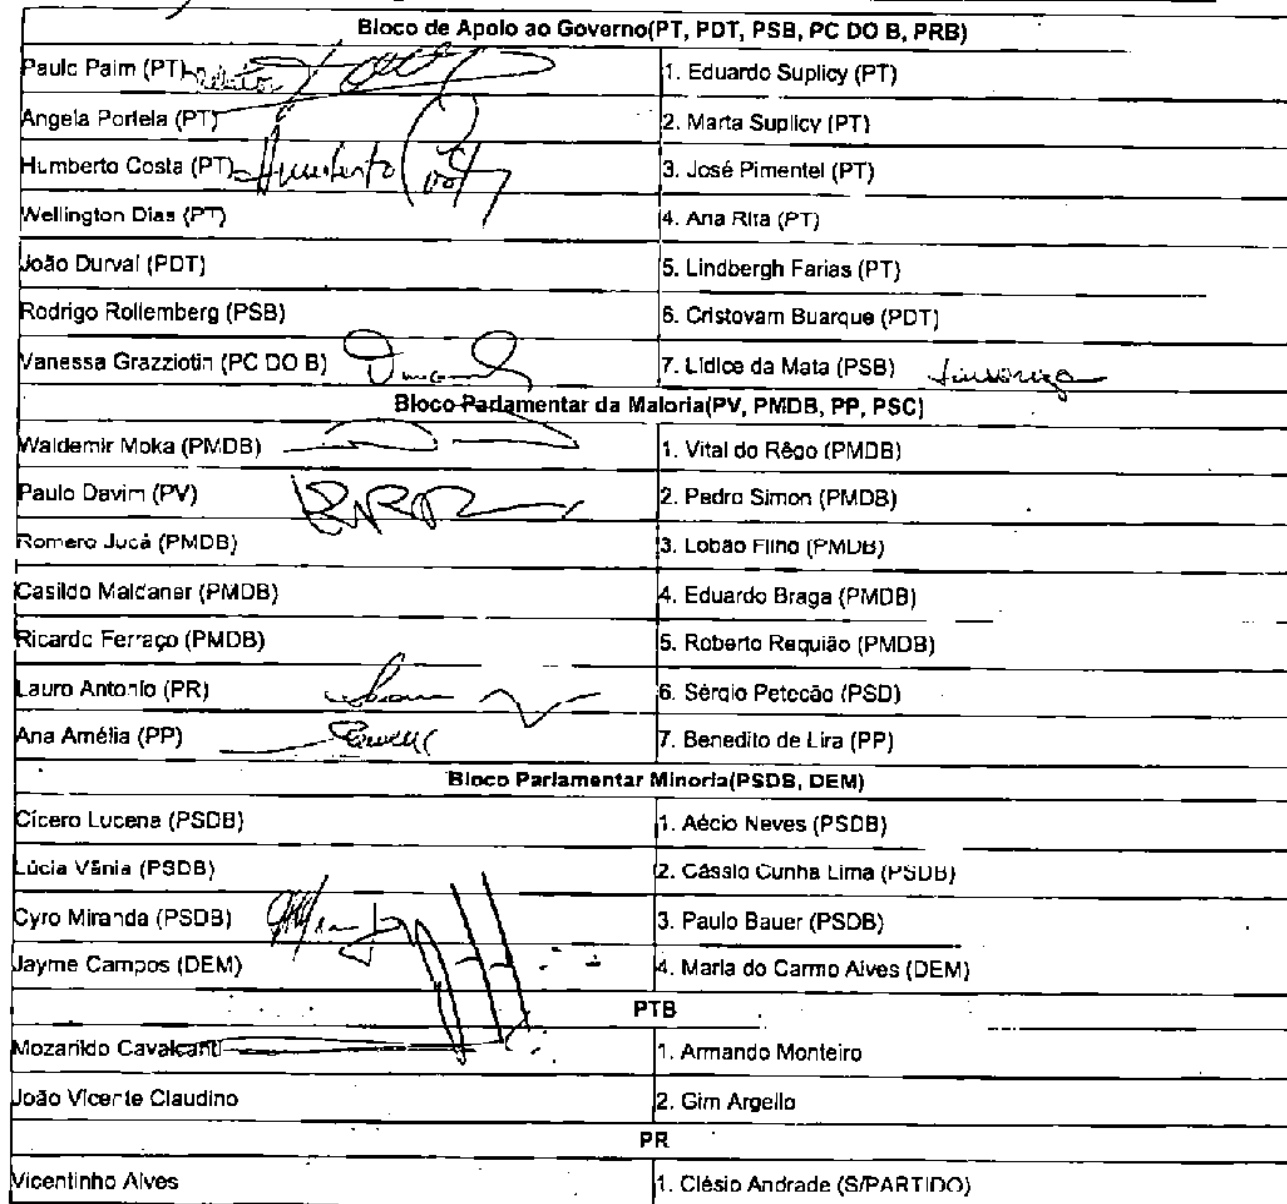 Bloco de Apoio ao Governo(PT, PDT, PSB, PC DO B, PRB)
Paulo Paim (PT) relator 1. Eduardo Suplicy (PT)
Angela Portela (PT) 2. Marta Suplicy (PT)
Humberto Costa (PT) Humberto Costa 3. José Pimentel (PT)
Wellington Dias (PT) 4. Ana Rita (PT)
João Durval (PDT) 5. Lindbergh Farias (PT)
Rodrigo Rollemberg (PSB) 6. Cristovam Buarque (PDT)
Vanessa Grazziotin (PC DO B) 7. Lídice da Mata (PSB)
Bloco Parlamentar da Maioria(PV, PMDB, PP, PSC)
Waldemir Moka (PMDB) 1. Vital do Rêgo (PMDB)
Paulo Davim (PV) 2. Pedro Simon (PMDB)
Romero Jucá (PMDB) 3. Lobão Filho (PMDB)
Casildo Maldaner (PMDB) 4. Eduardo Braga (PMDB)
Ricardo Ferraço (PMDB) 5. Roberto Requião (PMDB)
Lauro Antonio (PR) 6. Sérgio Petecão (PSD)
Ana Amélia (PP) 7. Benedito de Lira (PP)
Bloco Parlamentar Minoria(PSDB, DEM)
Cícero Lucena (PSDB) 1. Aécio Neves (PSDB)
Lúcia Vânia (PSDB) 2. Cássio Cunha Lima (PSDB)
Cyro Miranda (PSDB) 3. Paulo Bauer (PSDB)
Jayme Campos (DEM) 4. Maria do Carmo Alves (DEM)
PTB
Mozarildo Cavalcanti 1. Armando Monteiro
João Vicente Claudino 2. Gim Argello
PR
Vicentinho Alves 1. Clésio Andrade (S/PARTIDO)